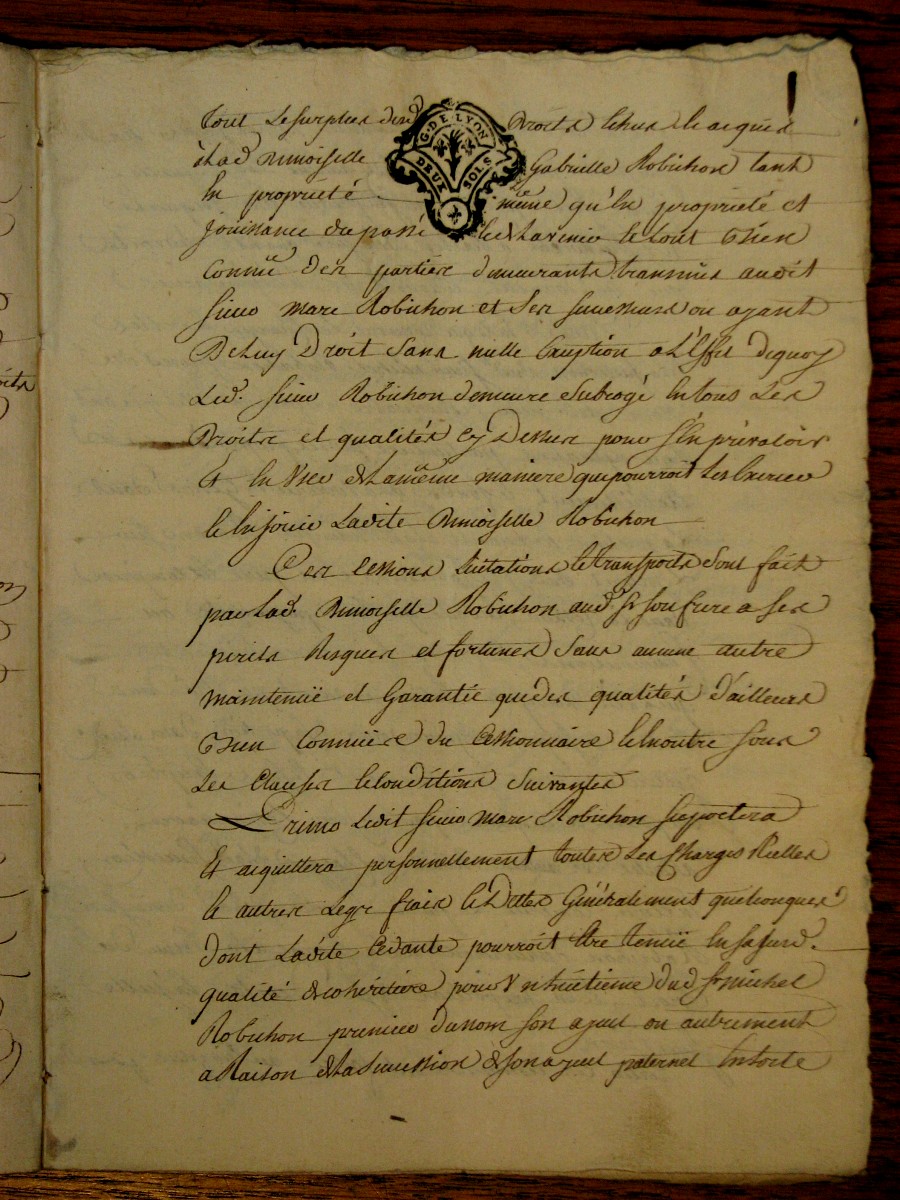 tout le surplus desd. Droits echus et acquis
G. DE LYON
DEUX SOLS
à lad. Dmoiselle Gabrielle Robichon tant
en propriété même qu'en propriété et
jouissance du passé et de l'avenir le tout bien
connüe des parties demeurants transmis audit
sieur Marc Robichon et ses successeurs ou ayant
De luy Droit sans nulle exception a l'effet de quoy
Led. sieur Robichon demeure subrogé en tous Les
Droits et qualités cy Dessus pour s'en prévaloir
Et en User de la même maniere que pourroit Les Exercer
et en jouir Ladite Dmoiselle Robichon
Ces cessions licitations et transports sont fait
par lad. Dmoiselle Robichon aud. sr son frere a ses
perils Risques et fortunes sans aucune autre
maintenüe et Garantie que des qualités d'ailleurs
bien connües du Cessionnaire et en outre sous
Les Clauses et Conditions suivantes
Primo Ledit sieur Marc Robichon suportera
Et acquittera personnellement toutes Les Charges Réelles
et autres Legs frais et Dettes Généralement quelconques
dont Ladite Cédante pourroit être tenüe en sa susd.
qualité de cohéritière pour Un huitième dud. sr Michel
Robichon premier du nom son ayeul ou autrement
a Raison de la Succession de son ayeul paternel en sorte